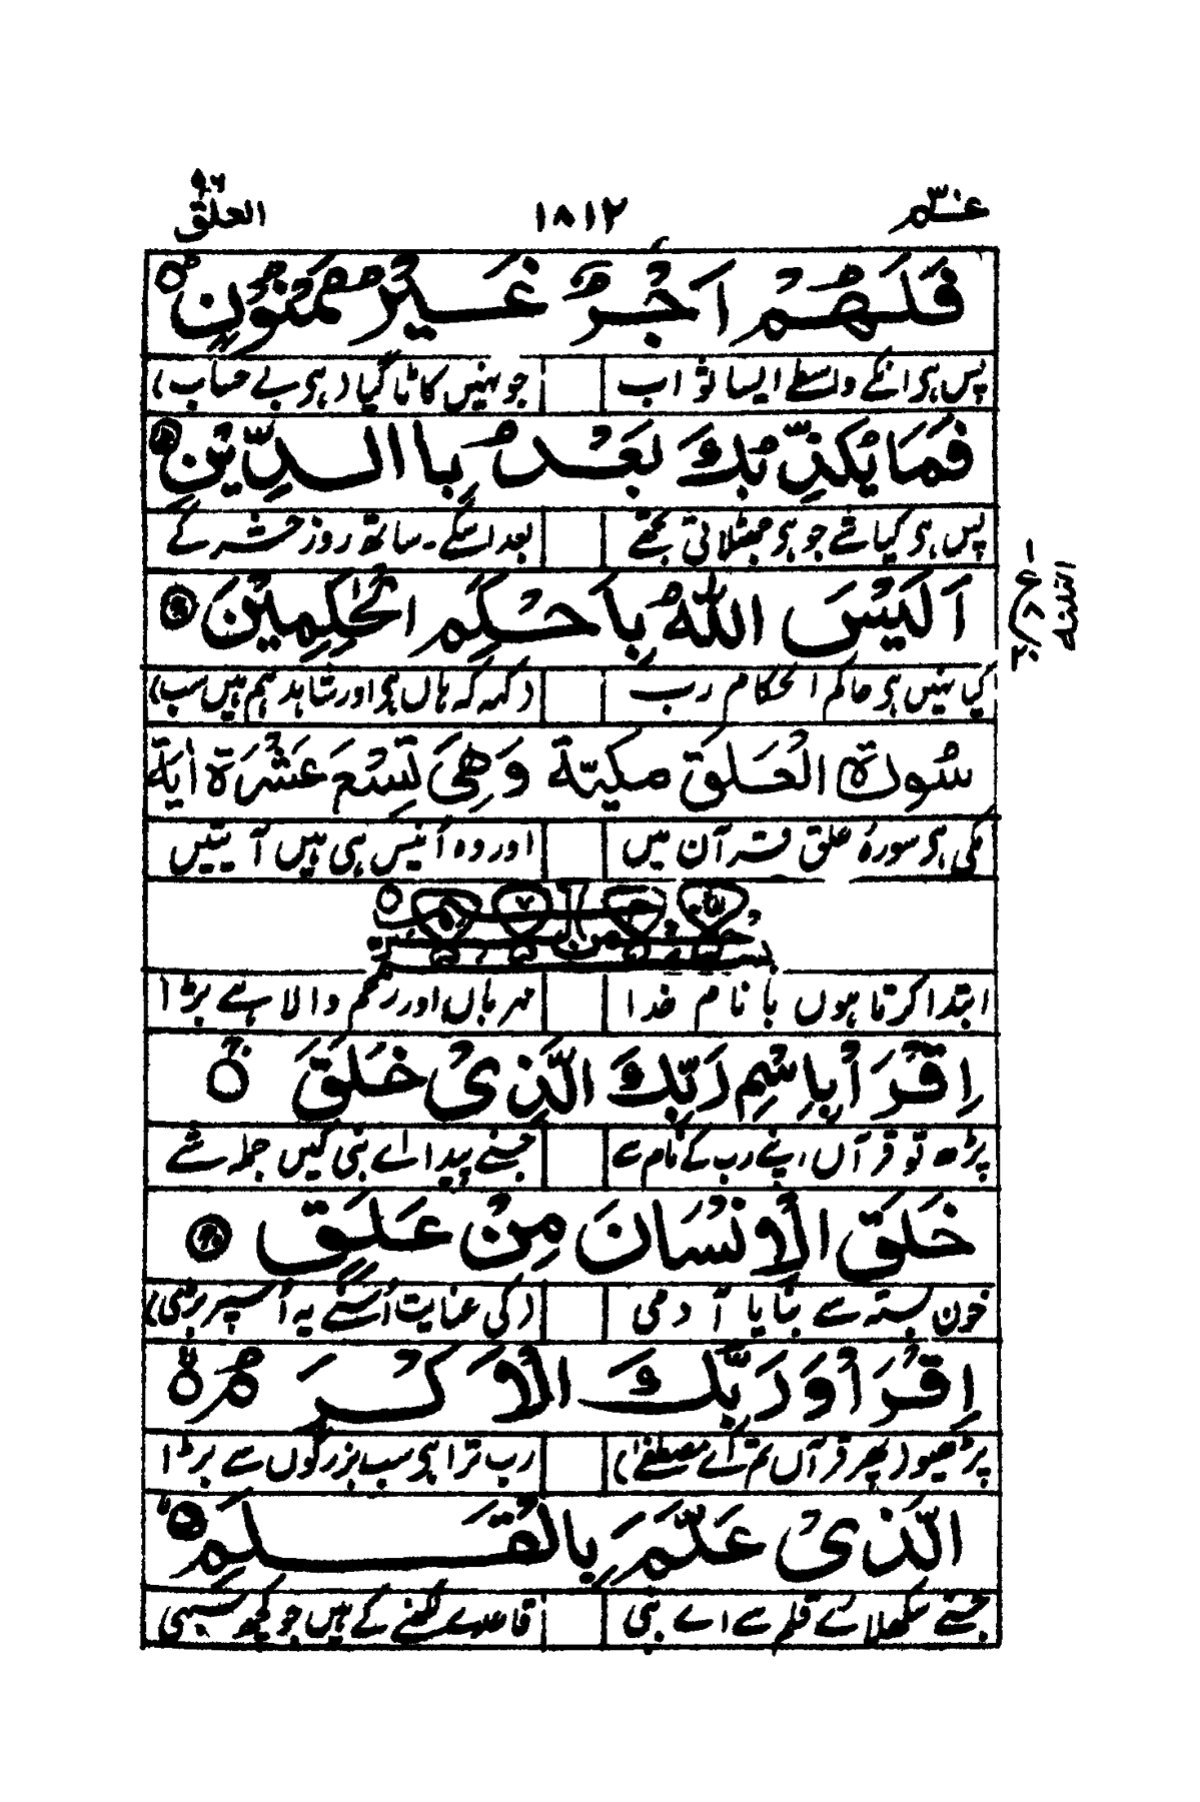 عـــم ١٨١٢ العلق ٩٦
فَلَهُمْ اَجْرٌ غَيْرُ مَمْنُوْنٍ
پس ہی انکے واسطے ایسا ثواب جو نہیں کاٹا گیا (ہی بے حساب)
فَمَا يُكَذِّبُكَ بَعْدُ بِاالدِّيْنِ
پس ہی کیا شے جو ہی جھٹلاتی تجھے بعد اسکے۔ ساتھ روز حشر کے
اَلَيْسَ اللّٰهُ بِاَحْكَمِ الْحٰكِمِيْنَ
کیا نہیں ہی حاکم الحکام رب (کہہ کہ ہاں ہی اور شاہد ہم ہیں سب)
سُورة الْعَلَقِ مكيّة وَهِيَ تِسْعَ عَشْرَةَ اٰيَة
مکی ہی سورۂ علق قرآن میں اور وہ اُنیس ہی ہیں آیتیں
ابتدا کرتا ہوں با نام خدا مہرباں اور رحم والا ہے بڑا
اِقْرَاْ بِاسْمِ رَبِّكَ الَّذِيْ خَلَقَ
پڑھ تو قرآں اپنے رب کے نام سے جسنے پیدا اے نبی کیں جملہ شے
خَلَقَ الْاِنْسَانَ مِنْ عَلَقٍ
خون بستہ سے بنایا آدمی (کی عنایت اُسنے یہ اُسپر بڑی)
اِقْرَاْ وَرَبُّكَ الْاَكْرَمُ
پڑھیو (پھر قرآں تم اے مصطفےٰ) رب ترا ہی سب بزرگوں سے بڑا
الَّذِيْ عَلَّمَ بِالْقَلَمِ
جسنے سکھلائے قلم سے اے نبی قاعدے لکھنے کے ہیں جو کچھ سبھی
الثلثة